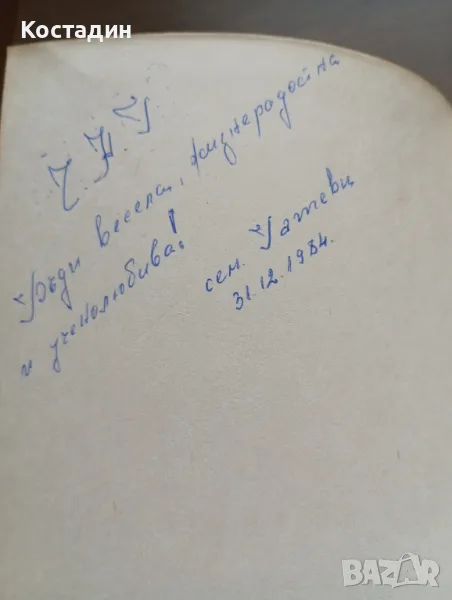 Костадин
Ч.Н.Г.
Бъди весела, жизнерадостна
и ученолюбива!
сем.
31.12.1984.
BAZAR